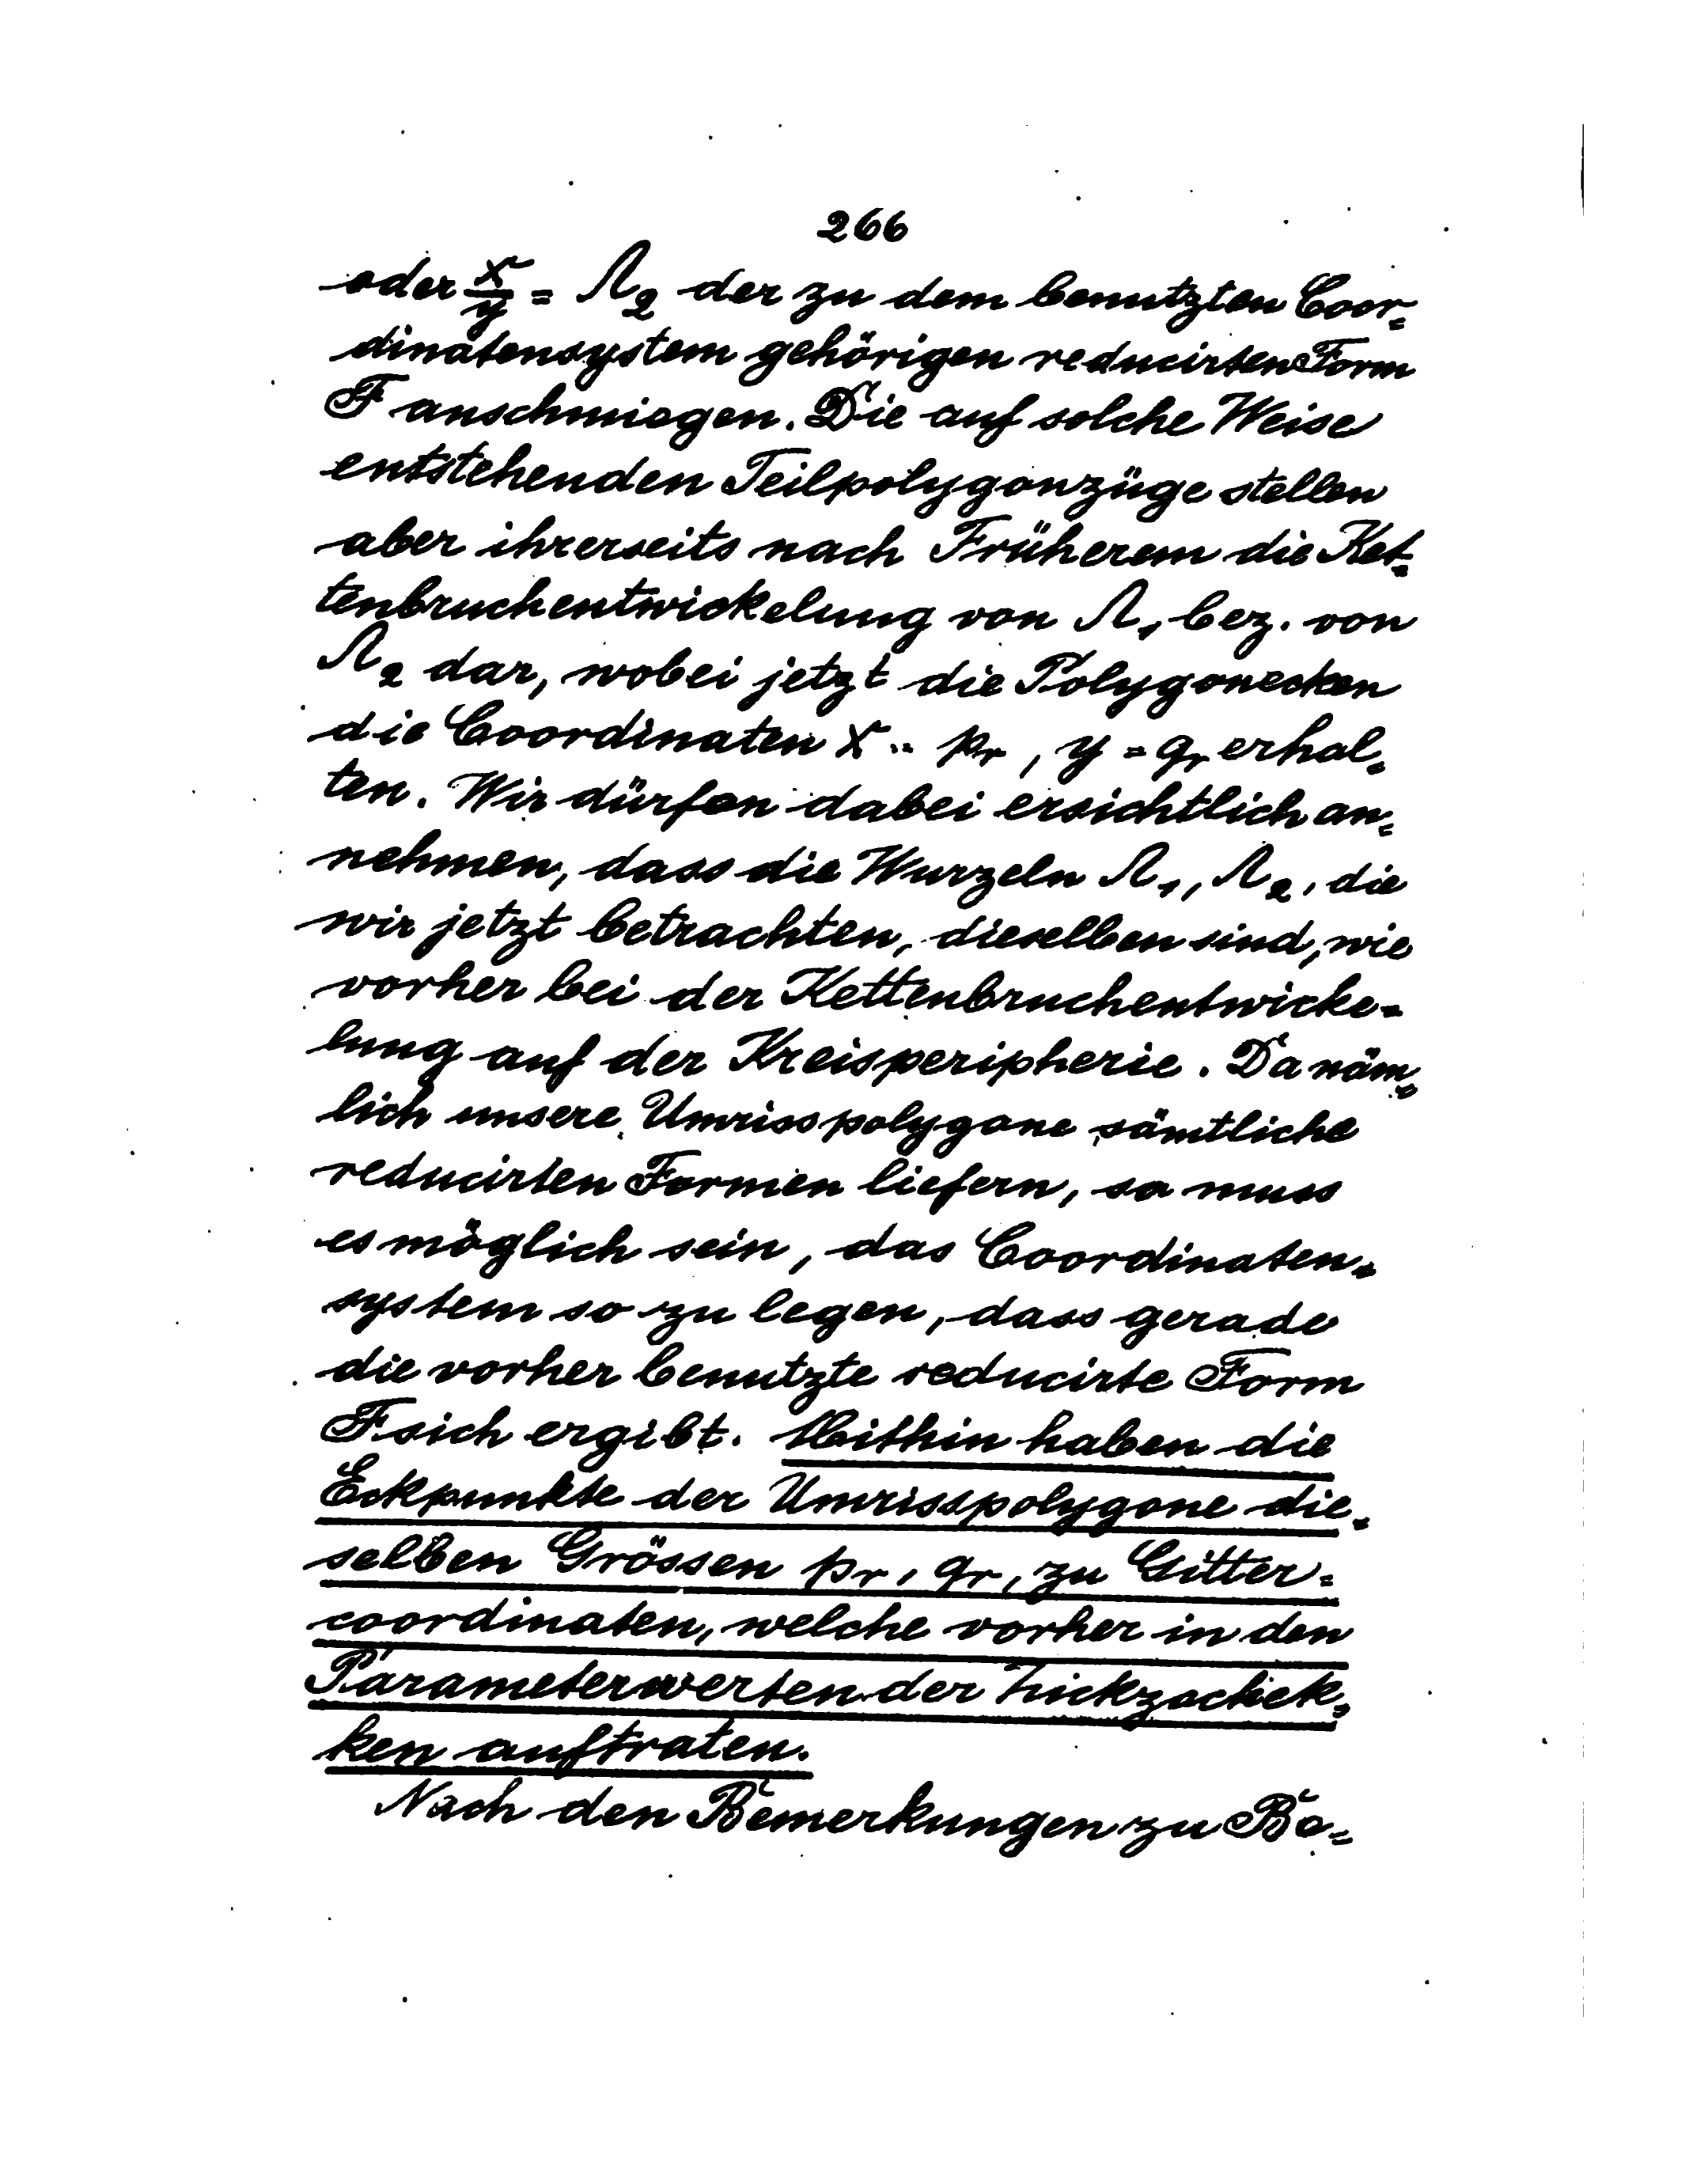 266
oder x/y = Λ2 der zu dem benutzten Coor=
dinatensystem gehörigen reducirten Form
F anschmiegen. Die auf solche Weise
entstehenden Teilpolygonzüge stellen
aber ihrerseits nach Früherem die Ket=
tenbruchentwickelung von Λ1 bez. von
Λ2 dar, wobei jetzt die Polygonecken
die Coordinaten x = pr, y = qr erhal=
ten. Wir dürfen dabei ersichtlich an=
nehmen, dass die Wurzeln Λ1, Λ2, die
wir jetzt betrachten, dieselben sind, wie
vorher bei der Kettenbruchentwicke=
lung auf der Kreisperipherie. Da näm=
lich unsere Umrisspolygone sämtliche
reducirten Formen liefern, so muss
es möglich sein, das Coordinaten=
system so zu legen, dass gerade
die vorher benutzte reducirte Form
F sich ergibt. Mithin haben die
Eckpunkte der Umrisspolygone die=
selben Grössen pr, qr, zu Gitter=
coordinaten, welche vorher in den
Parameterwerten der Zickzackek=
ken auftraten.
Nach den Bemerkungen zu Be=